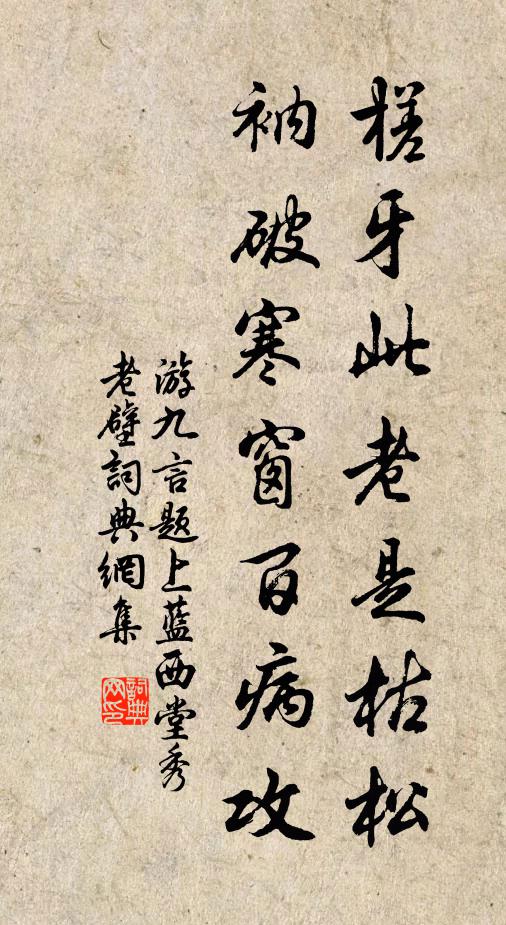 槎牙此老是枯松
衲破寒窗百病攻
游九言题上蓝西堂秀
老壁詞典網集
詞典
网印